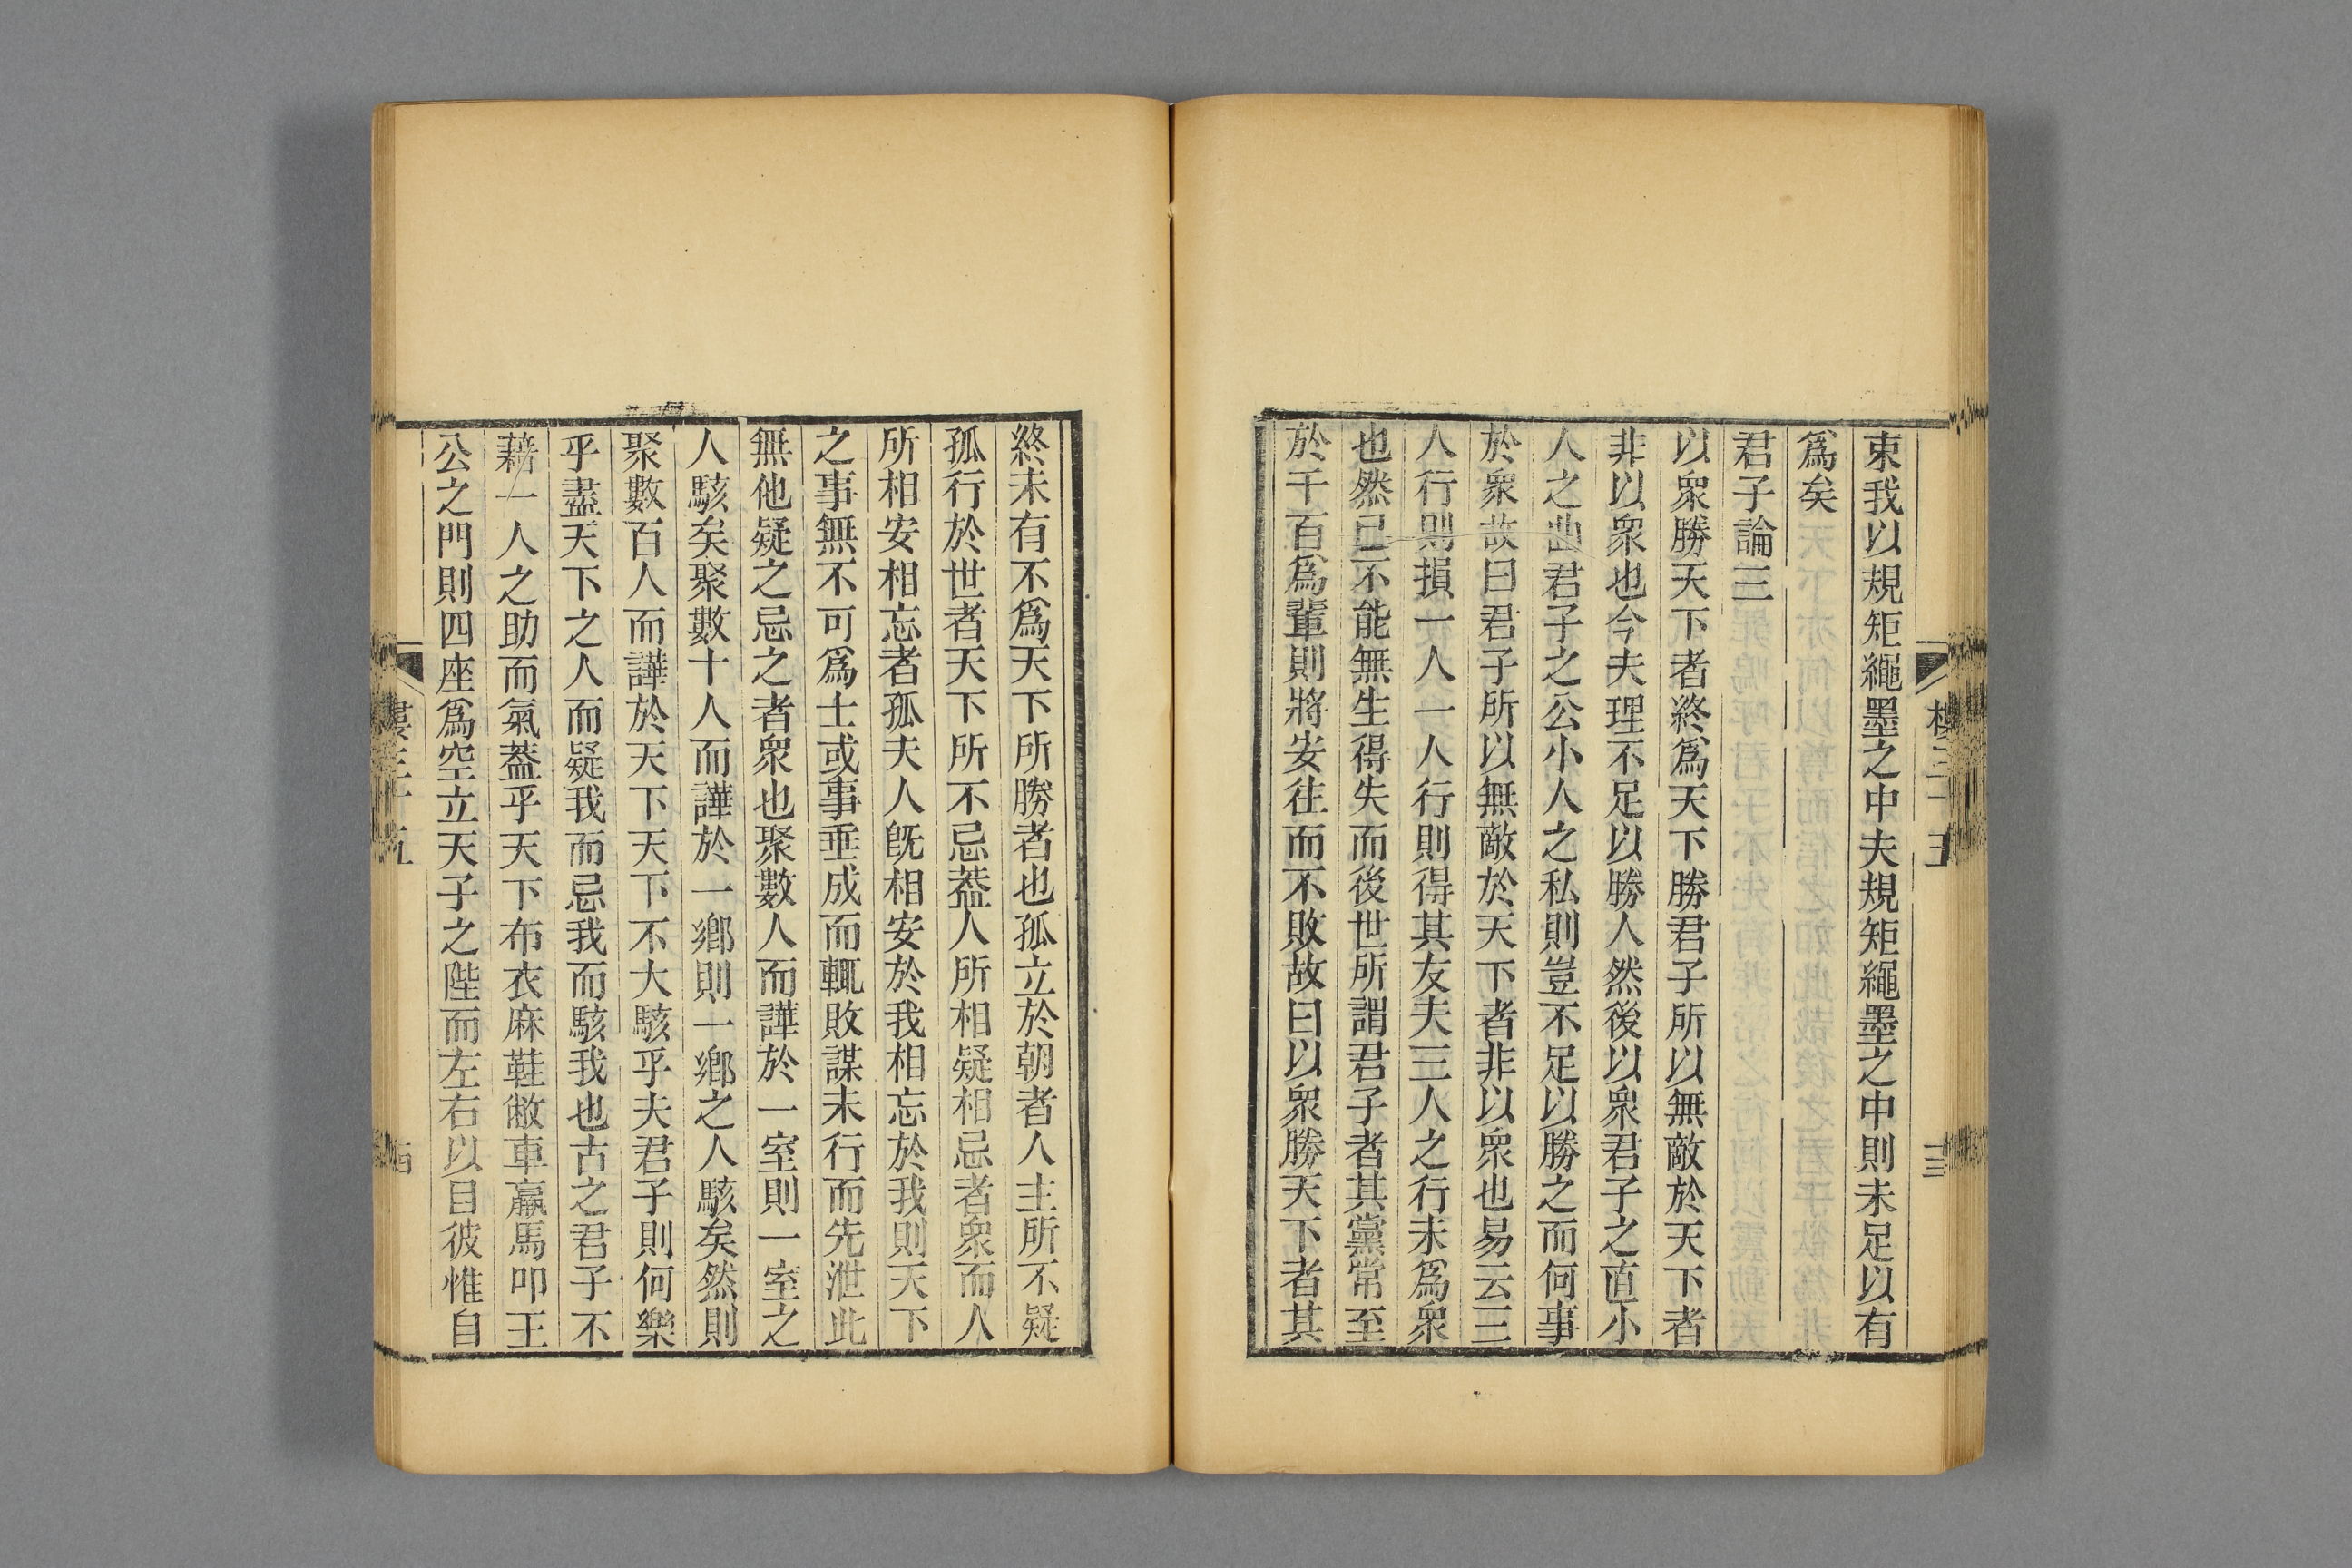 束我以規矩繩墨之中夫規矩繩墨之中則未足以有
爲矣
君子論三
以衆勝天下者終爲天下勝君子所以無敵於天下者
非以衆也今夫理不足以勝人然後以衆君子之直小
人之曲君子之公小人之私則豈不足以勝之而何事
於衆故曰君子所以無敵於天下者非以衆也易云三
人行則損一人一人行則得其友夫三人之行未爲衆
也然已不能無生得失而後世所謂君子者其黨常至
於千百爲輩則將安往而不敗故曰以衆勝天下者其
終未有不爲天下所勝者也孤立於朝者人主所不疑
孤行於世者天下所不忌葢人所相疑相忌者衆而人
所相安相忘者孤夫人旣相安於我相忘於我則天下
之事無不可爲士或事垂成而輒敗謀未行而先泄此
無他疑之忌之者衆也聚數人而譁於一室則一室之
人駭矣聚數十人而譁於一鄉則一鄉之人駭矣然則
聚數百人而譁於天下天下不大駭乎夫君子則何樂
乎盡天下之人而疑我而忌我而駭我也古之君子不
藉一人之助而氣葢乎天下布衣麻鞋敝車羸馬叩王
公之門則四座爲空立天子之陛而左右以目彼惟自